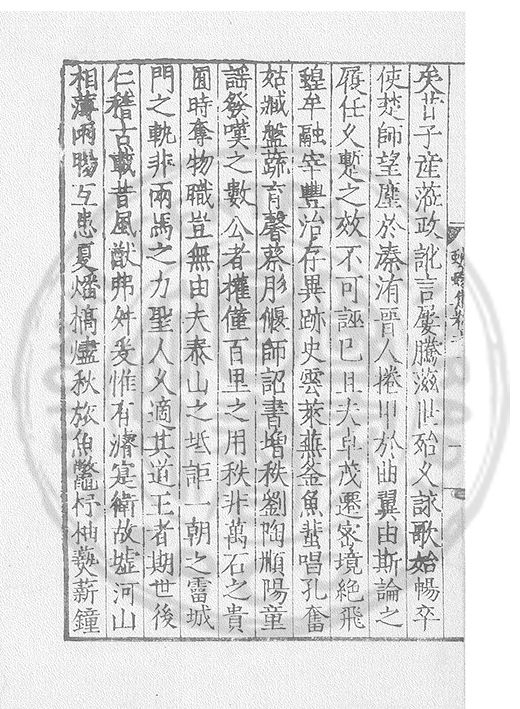 矣昔子産蒞政訛言屢騰滋世殆乂詠歌始暢卒
使楚師望塵於溱洧晉人捲甲於曲翼由斯論之
履任久蹔之效不可誣已且夫卓茂遷密境絶飛
蝗牟融宰豐治存異跡史雲萊蕪釡魚蜚唱孔奮
姑臧盤蔬育馨蔡肜偃師詔書增秩劉陶順陽童
謡發嘆之數公者權僅百里之用秩非萬石之貴
圄時奪物職豈無由夫泰山之坻詎一朝之霤城
門之軌非兩馬之力聖人久適其道王者期世後
仁稽古載昔風猷弗舛爰惟有濟寔衛故墟河山
相薄兩賜互患夏燔槁燼秋旅魚鼈杼柚薪鐘